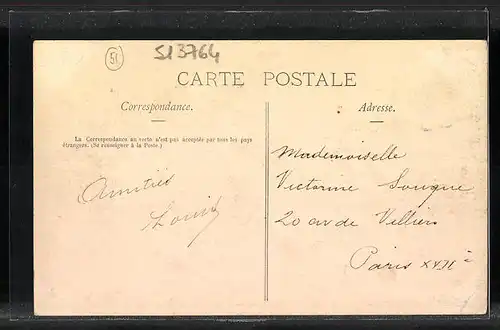 51
513764
CARTE POSTALE
Correspondance.
Adresse.
La Correspondance au verso n'est pas acceptée par tous les pays
étrangers. (Se renseigner à la Poste.)
Mademoiselle
Victorine
20 av de Villiers
Paris XVII e
Amitiés
Louis